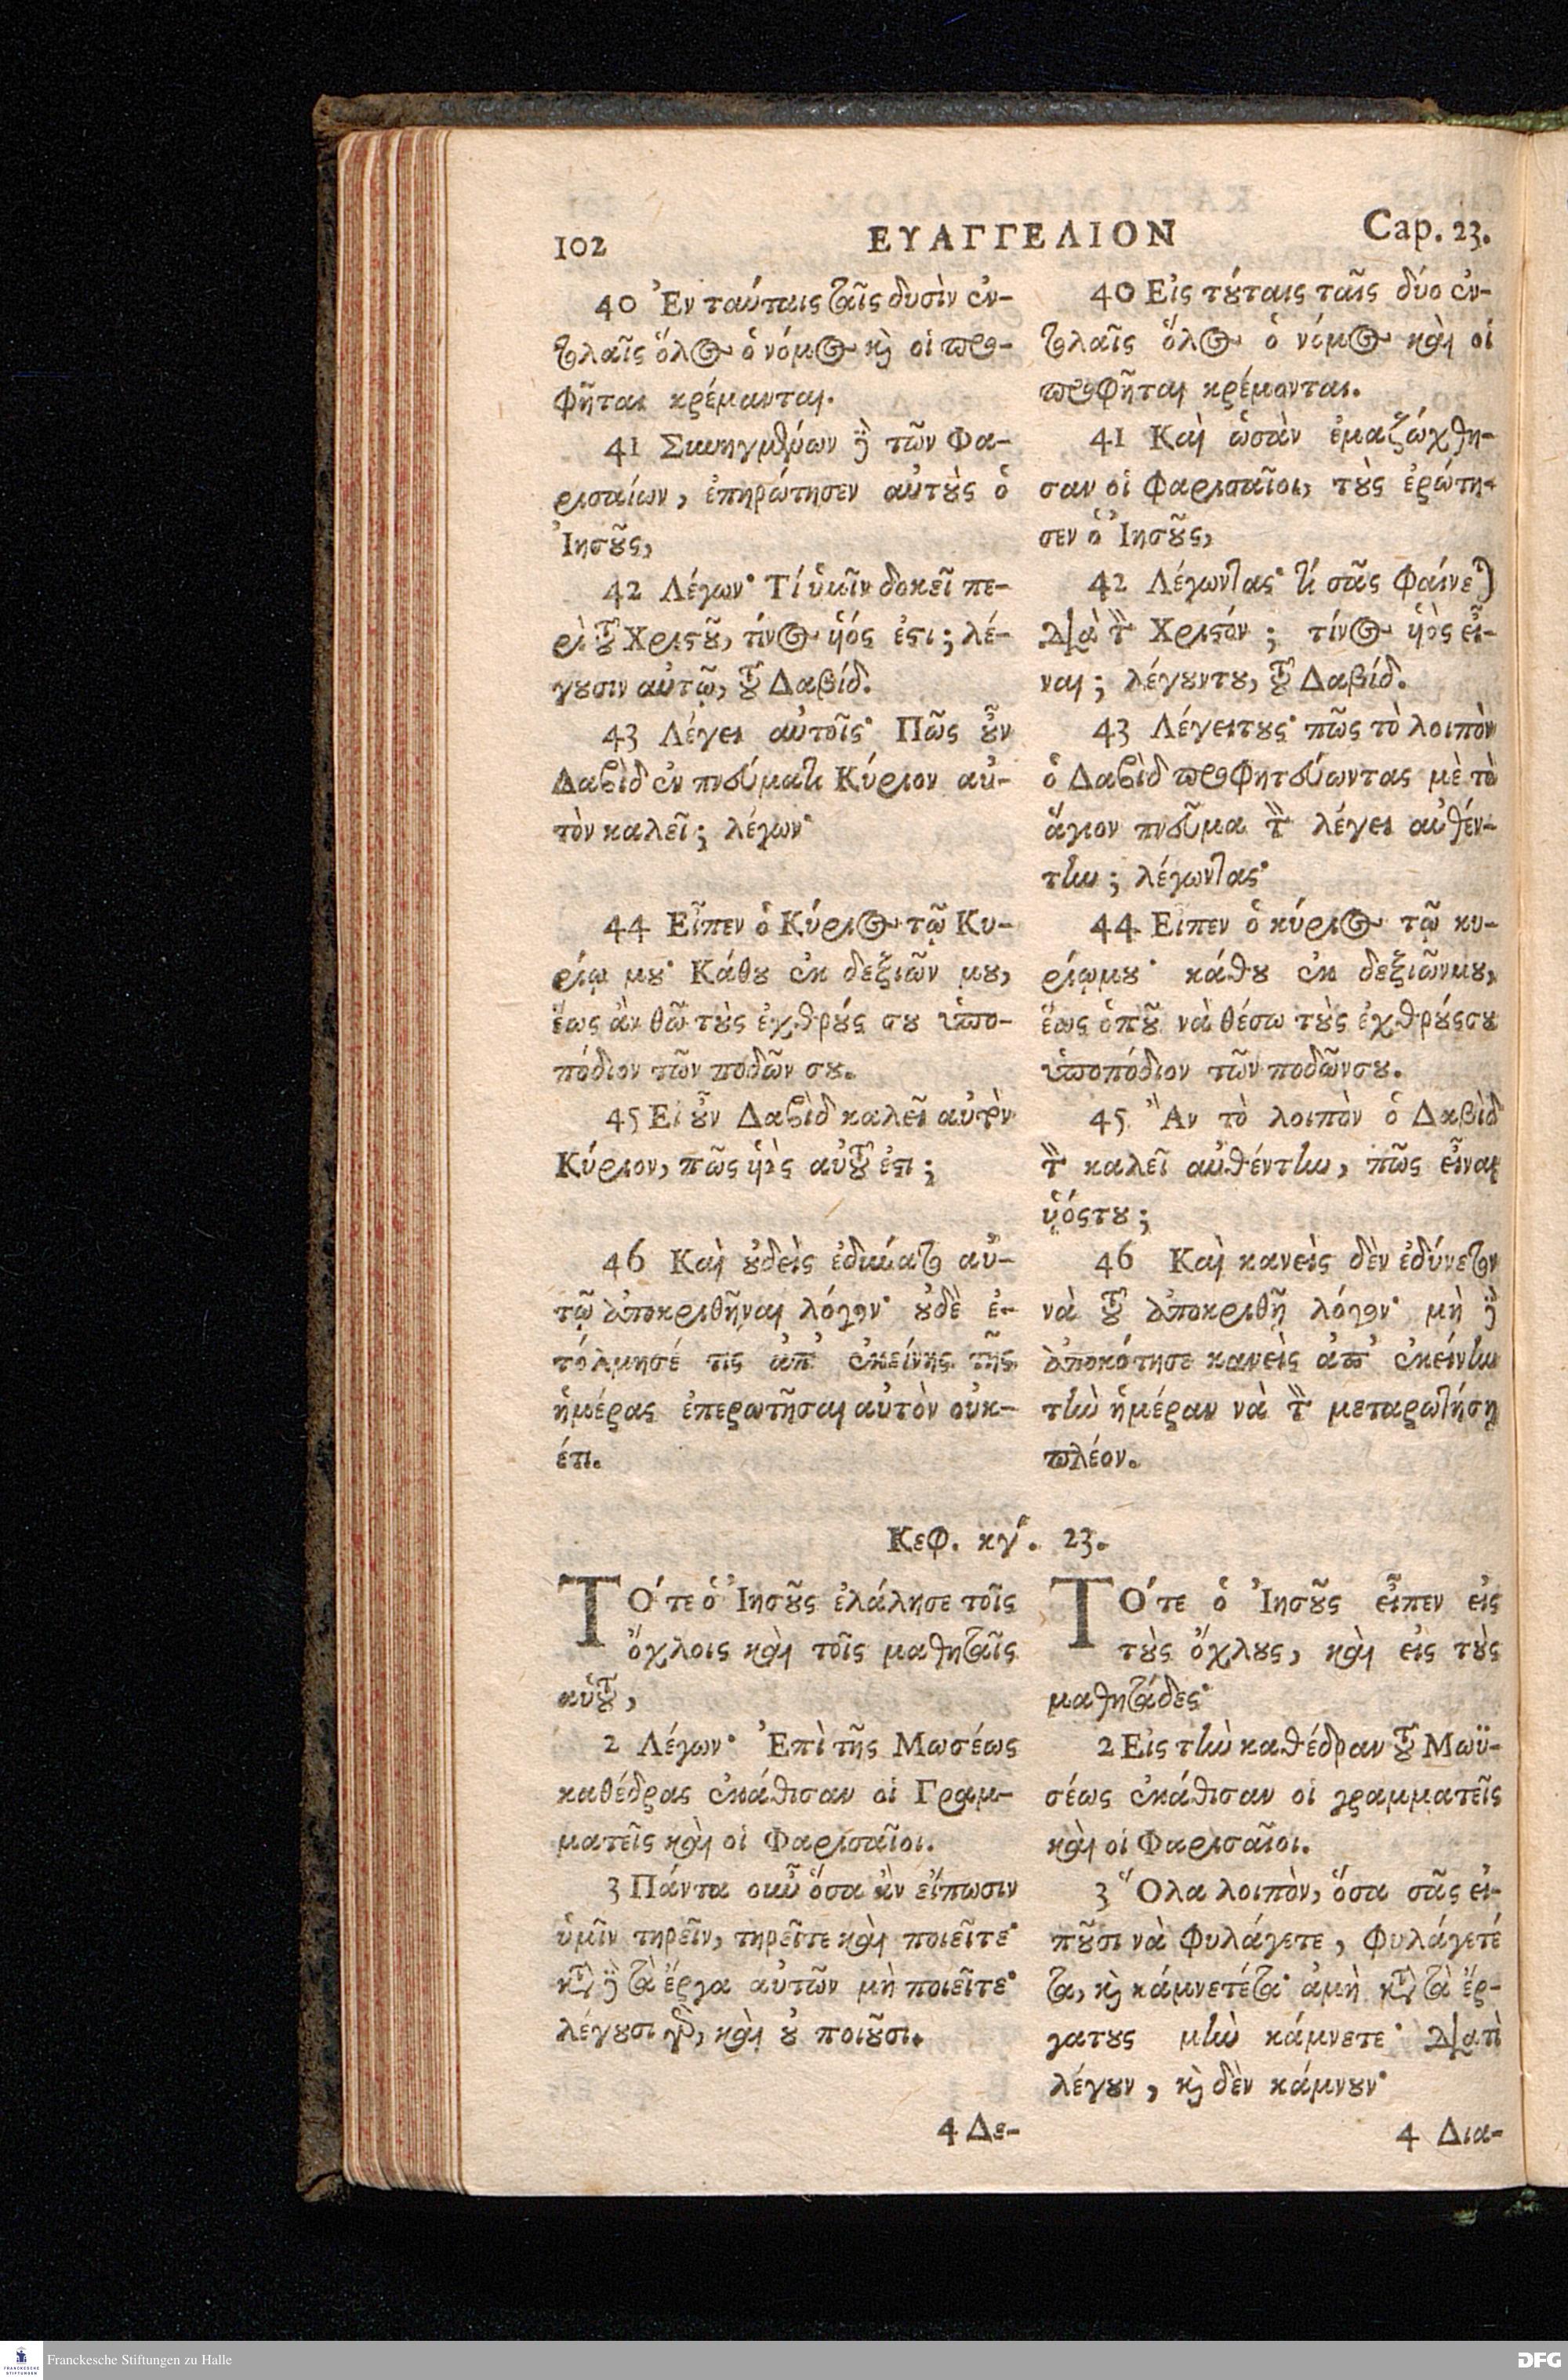 102 ΕΥΑΓΓΕΛΙΟΝ Cap. 23.
40 Ἐν ταύταις ταῖς δυσὶν ἐν-
τολαῖς ὅλος ὁ νόμος κ̀ οἱ προ-
φῆται κρέμανται.
41 Συνηγμένων ἢ τῶν Φα-
ρισαίων, ἐπηρώτησεν αὐτȣ̀ς ὁ
Ἰησȣ͂ς,
42 Λέγων· Τί ὑμῖν δοκεῖ πε-
ρὶ τȣ͂ Χριϛȣ͂, τίνος ὑός ἐϛι; λέ-
γȣσιν αὐτῷ, τȣ͂ Δαβίδ.
43 Λέγει αὐτοῖς· Πῶς ȣ̓͂ν
Δαβὶδ ἐν πνεύματι Κύριον αὐ-
τὸν καλεῖ; λέγων·
44 Εἶπεν ὁ Κύριος τῷ Κυ-
ρίῳ μȣ· Κάθȣ ἐκ δεξιῶν μȣ,
ἕως ἂν θῶ τȣ̀ς ἐχθρȣ́ς σȣ ὑπο-
πόδιον τῶν ποδῶν σȣ.
45 Εἰ ȣ̓͂ν Δαβὶδ καλεῖ αὐτὸν
Κύριον, πῶς ὑὸς αὐτȣ͂ ἐϛι;
46 Καὶ ȣ̓δεὶς ἐδύνατο αὐ-
τῷ ἀποκριθῆναι λόγον· ȣ̓δὲ ἐ-
τόλμησέ τις ἀπ' ἐκείνης τῆς
ἡμέρας ἐπερωτῆσαι αὐτὸν οὐκ-
έτι.
40 Εἰς τȣ́ταις ταῖς δύο ἐν-
τολαῖς ὅλος ὁ νόμος καὶ οἱ
προφῆται κρέμονται.
41 Καὶ ὡσὰν ἐμαζώχθη-
σαν οἱ Φαρισαῖοι, τȣ̀ς ἐρώτη-
σεν ὁ Ἰησȣ͂ς,
42 Λέγωντας· τί σᾶς φαίνεται
διὰ τὸν Χριϛόν; τίνος ὑὸς εἶ-
ναι; λέγȣντȣ, τȣ͂ Δαβίδ.
43 Λέγειτȣς· πῶς τὸ λοιπὸν
ὁ Δαβὶδ προφητεύωντας μὲ τὸ
ἅγιον πνεῦμα τὸν λέγει αὐθέν-
την; λέγωντας·
44 Εἶπεν ὁ κύριος τῷ κυ-
ρίῳμȣ· κάθȣ ἐκ δεξιῶνμȣ,
ἕως ὁπȣ͂ νὰ θέσω τȣ̀ς ἐχθρȣ́ςσȣ
ὑποπόδιον τῶν ποδῶνσȣ.
45 Ἂν τὸ λοιπὸν ὁ Δαβὶδ
τὸν καλεῖ αὐθέντην, πῶς εἶναι
ὑόςτȣ;
46 Καὶ κανεὶς δὲν ἐδύνετον
νὰ τȣ͂ ἀποκριθῇ λόγον· μὴ ἢ
ἀποκότησε κανεὶς ἀπ' ἐκείνην
τὴν ἡμέραν νὰ τὸν μεταρωτήσῃ
πλέον.
Κεφ. κγ'. 23.
ΤΌτε ὁ Ἰησȣ͂ς ἐλάλησε τοῖς
ὄχλοις καὶ τοῖς μαθηταῖς
αὐτȣ͂,
2 Λέγων· Ἐπὶ τῆς Μωσέως
καθέδρας ἐκάθισαν οἱ Γραμ-
ματεῖς καὶ οἱ Φαρισαῖοι.
3 Πάντα οὖν ὅσα ἂν εἴπωσιν
ὑμῖν τηρεῖν, τηρεῖτε καὶ ποιεῖτε·
κατὰ ἢ τὰ ἔργα αὐτῶν μὴ ποιεῖτε·
λέγȣσι γὰρ, καὶ ȣ̓ ποιȣ͂σι.
4 Δε-
ΤΌτε ὁ Ἰησȣ͂ς εἶπεν εἰς
τȣ̀ς ὄχλȣς, καὶ εἰς τȣ̀ς
μαθητάδες·
2 Εἰς τὴν καθέδραν τȣ͂ Μωϋ-
σέως ἐκάθισαν οἱ γραμματεῖς
καὶ οἱ Φαρισαῖοι.
3 Ὅλα λοιπὸν, ὅσα σᾶς εἰ-
πȣ͂σι νὰ φυλάγετε, φυλάγετέ
τα, κ̀ κάμνετέτα· ἀμὴ κατὰ τὰ ἔρ-
γατȣς μὴν κάμνετε· διατὶ
λέγȣν, κ̀ δὲν κάμνȣν·
4 Δια-
Franckesche Stiftungen zu Halle
DFG